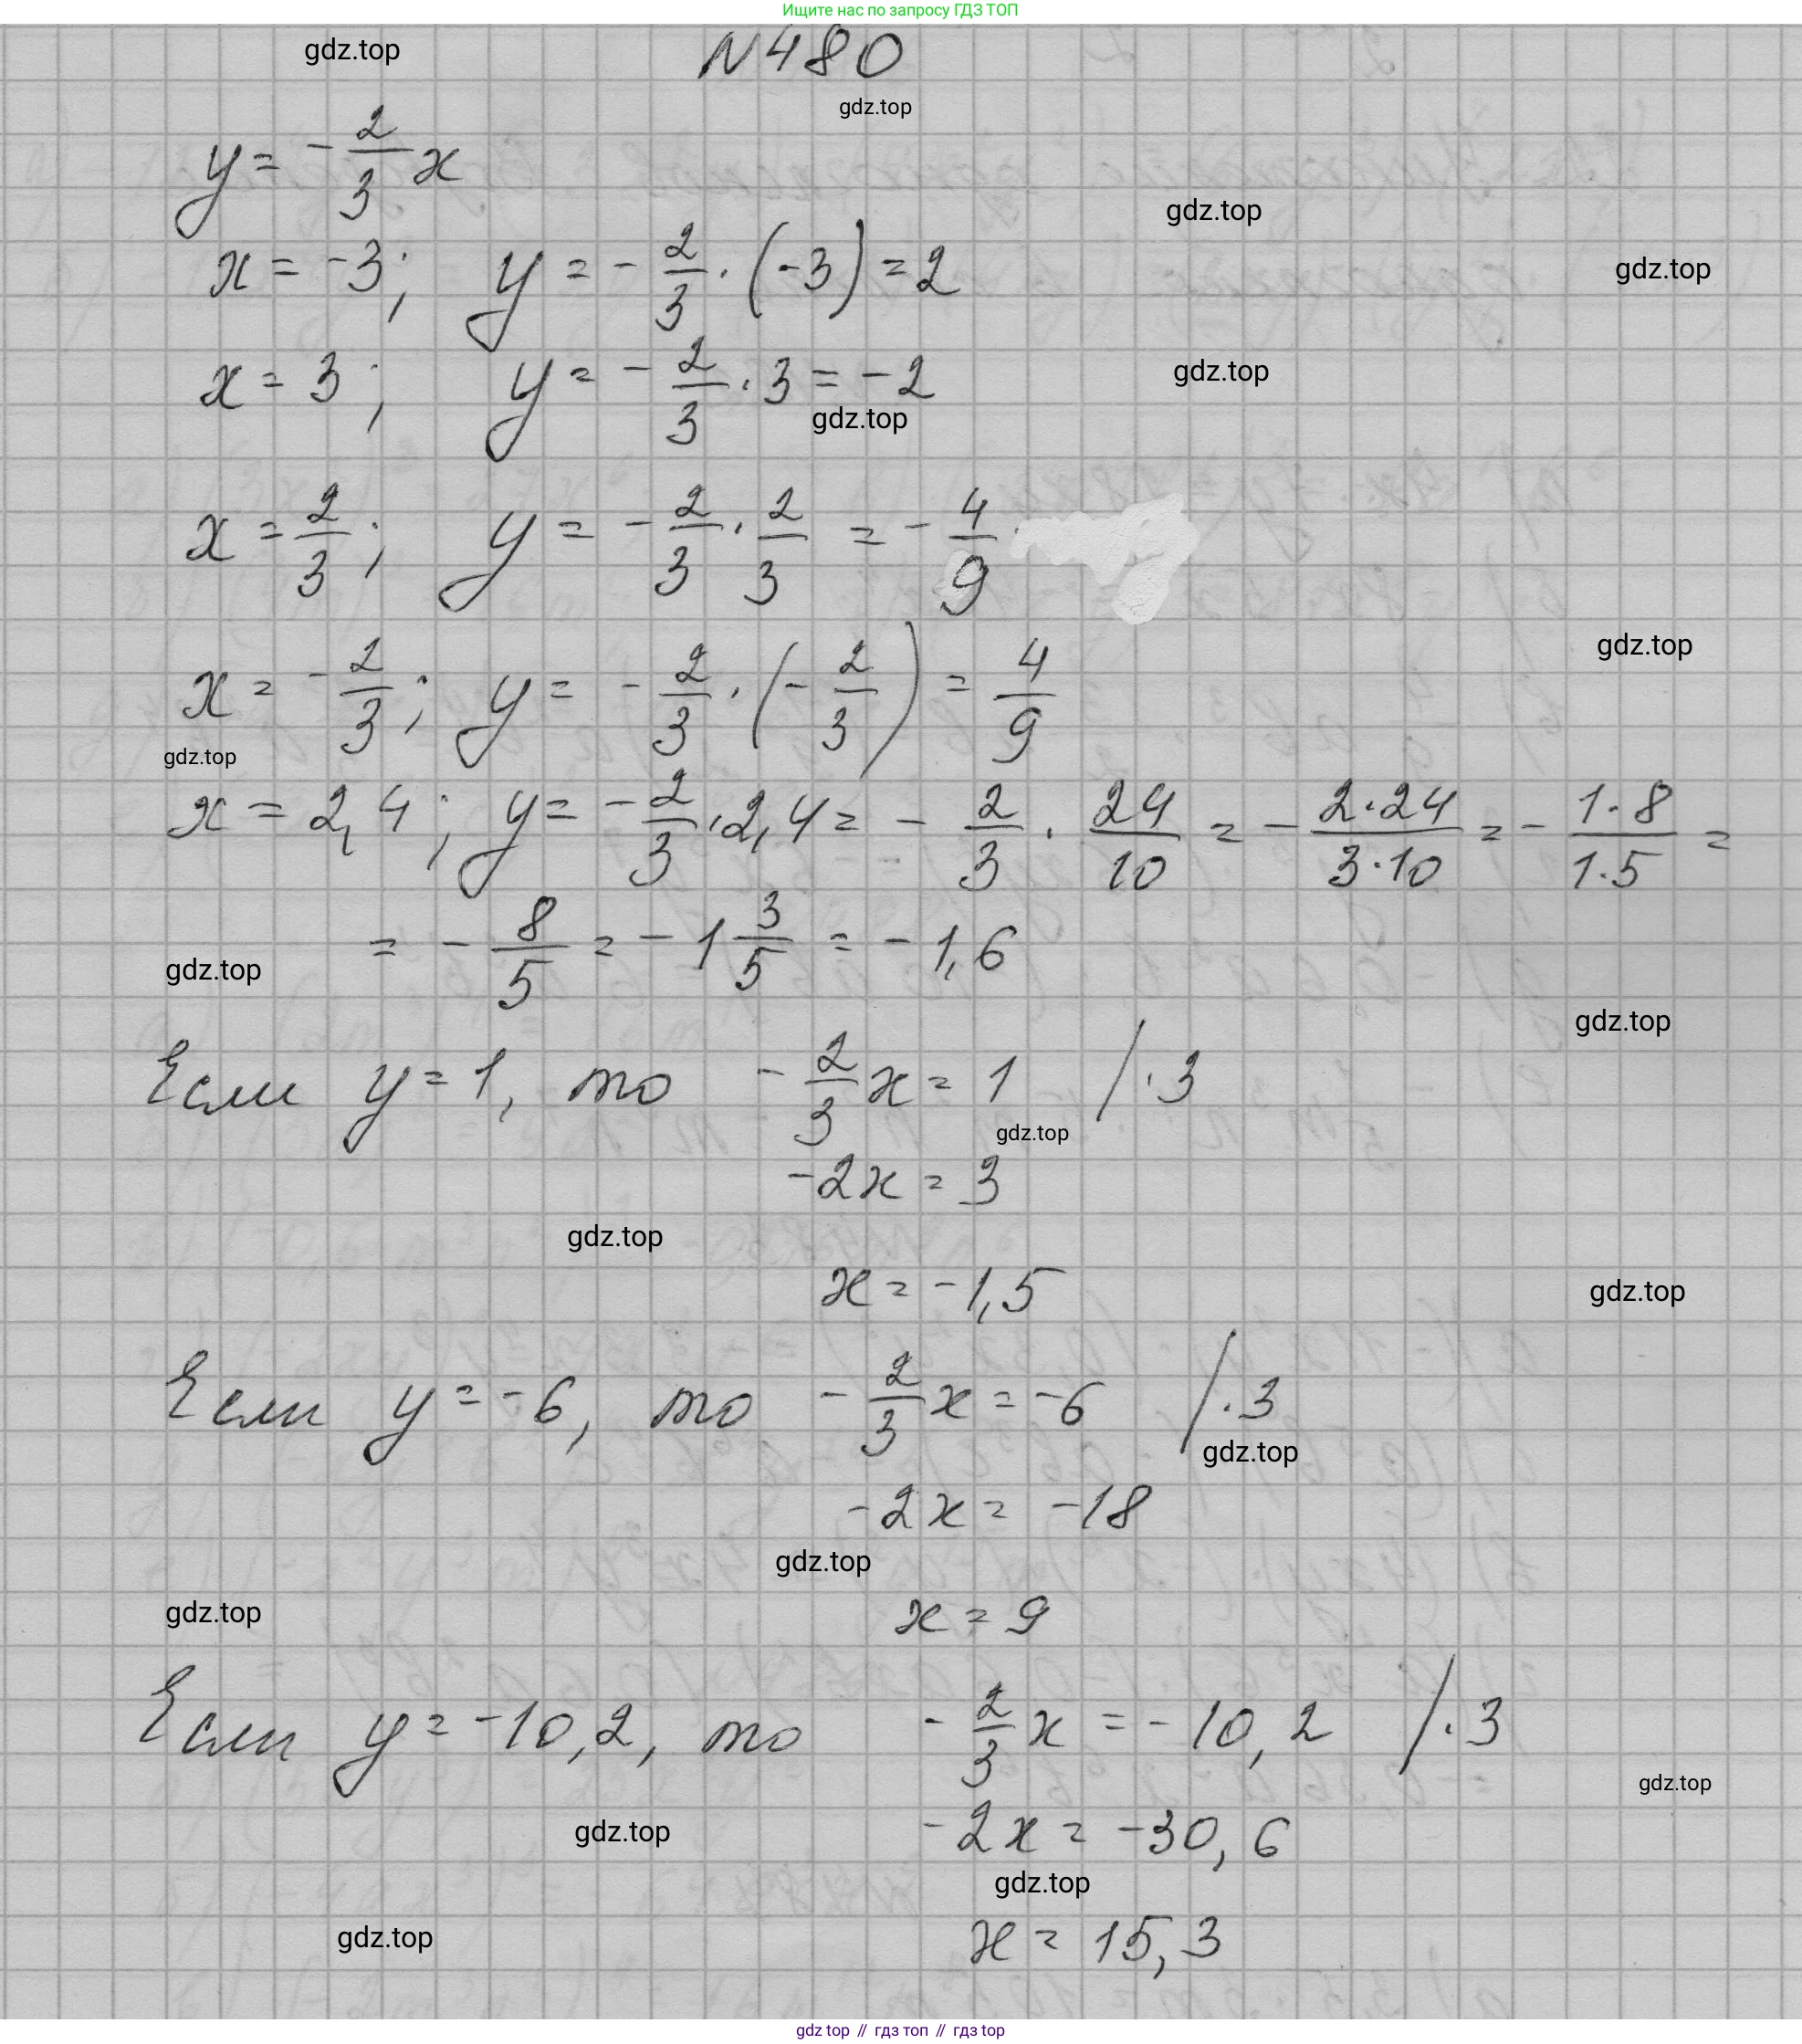 Ищите нас по запросу ГДЗ ТОП
gdz.top
N480
gdz.top
y = -2/3 x
gdz.top
x = -3; y = -2/3 · (-3) = 2
gdz.top
x = 3; y = -2/3 · 3 = -2
gdz.top
gdz.top
x = 2/3; y = -2/3 · 2/3 = -4/9
gdz.top
x = -2/3; y = -2/3 · (-2/3) = 4/9
gdz.top
x = 2,4; y = -2/3 · 2,4 = -2/3 · 24/10 = -2·24/3·10 = -1·8/1·5 =
= -8/5 = -1 3/5 = -1,6
gdz.top
gdz.top
Если y = 1, то -2/3 x = 1 /·3
gdz.top
-2x = 3
gdz.top
x = -1,5
gdz.top
Если y = -6, то -2/3 x = -6 /·3
gdz.top
-2x = -18
gdz.top
gdz.top
x = 9
Если y = -10,2, то -2/3 x = -10,2 /·3
gdz.top
gdz.top
-2x = -30,6
gdz.top
gdz.top
x = 15,3
gdz top // гдз топ // гдз top